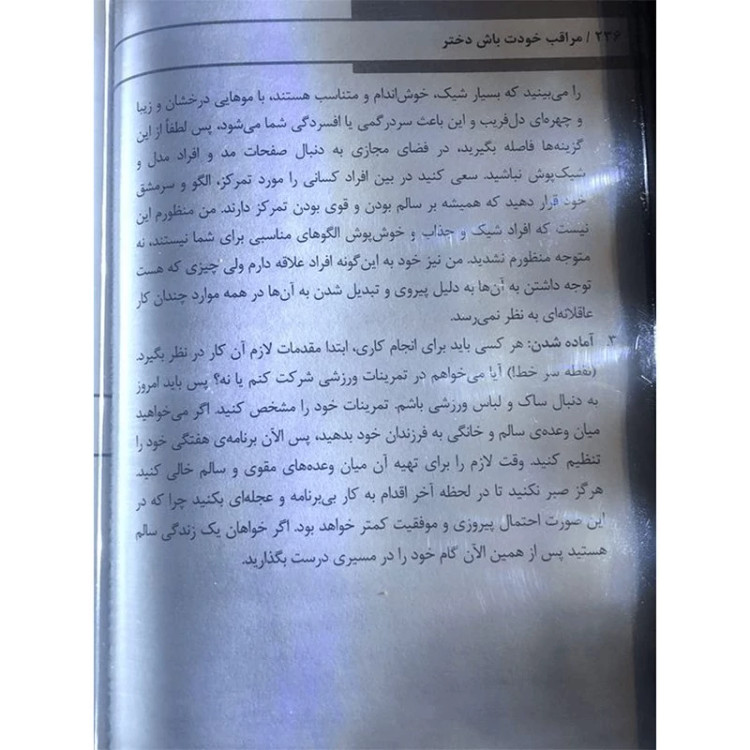 ۲۳۶ / مراقب خودت باش دختر
را می‌بینید که بسیار شیک، خوش‌اندام و متناسب هستند، با موهایی درخشان و زیبا
و چهره‌ای دل‌فریب و این باعث سردرگمی یا افسردگی شما می‌شود، پس لطفاً از این
گزینه‌ها فاصله بگیرید، در فضای مجازی به دنبال صفحات مد و افراد مدل و
شیک‌پوش نباشید. سعی کنید در بین افراد کسانی را مورد تمرکز، الگو و سرمشق
خود قرار دهید که همیشه بر سالم بودن و قوی بودن تمرکز دارند. من منظورم این
نیست که افراد شیک و جذاب و خوش‌پوش الگوهای مناسبی برای شما نیستند، نه
متوجه منظورم نشدید. من نیز خود به این‌گونه افراد علاقه دارم ولی چیزی که هست
توجه داشتن به آن‌ها به دلیل پیروی و تبدیل شدن به آن‌ها در همه موارد چندان کار
عاقلانه‌ای به نظر نمی‌رسد.
۳. آماده شدن: هر کسی باید برای انجام کاری، ابتدا مقدمات لازم آن کار در نظر بگیرد.
(نقطه سر خط!) آیا می‌خواهم در تمرینات ورزشی شرکت کنم یا نه؟ پس باید امروز
به دنبال ساک و لباس ورزشی باشم. تمرینات خود را مشخص کنید. اگر می‌خواهید
میان وعده‌ی سالم و خانگی به فرزندان خود بدهید، پس الآن برنامه‌ی هفتگی خود را
تنظیم کنید. وقت لازم را برای تهیه آن میان وعده‌های مقوی و سالم خالی کنید.
هرگز صبر نکنید تا در لحظه آخر اقدام به کار بی‌برنامه و عجله‌ای بکنید چرا که در
این صورت احتمال پیروزی و موفقیت کمتر خواهد بود. اگر خواهان یک زندگی سالم
هستید پس از همین الآن گام خود را در مسیری درست بگذارید.